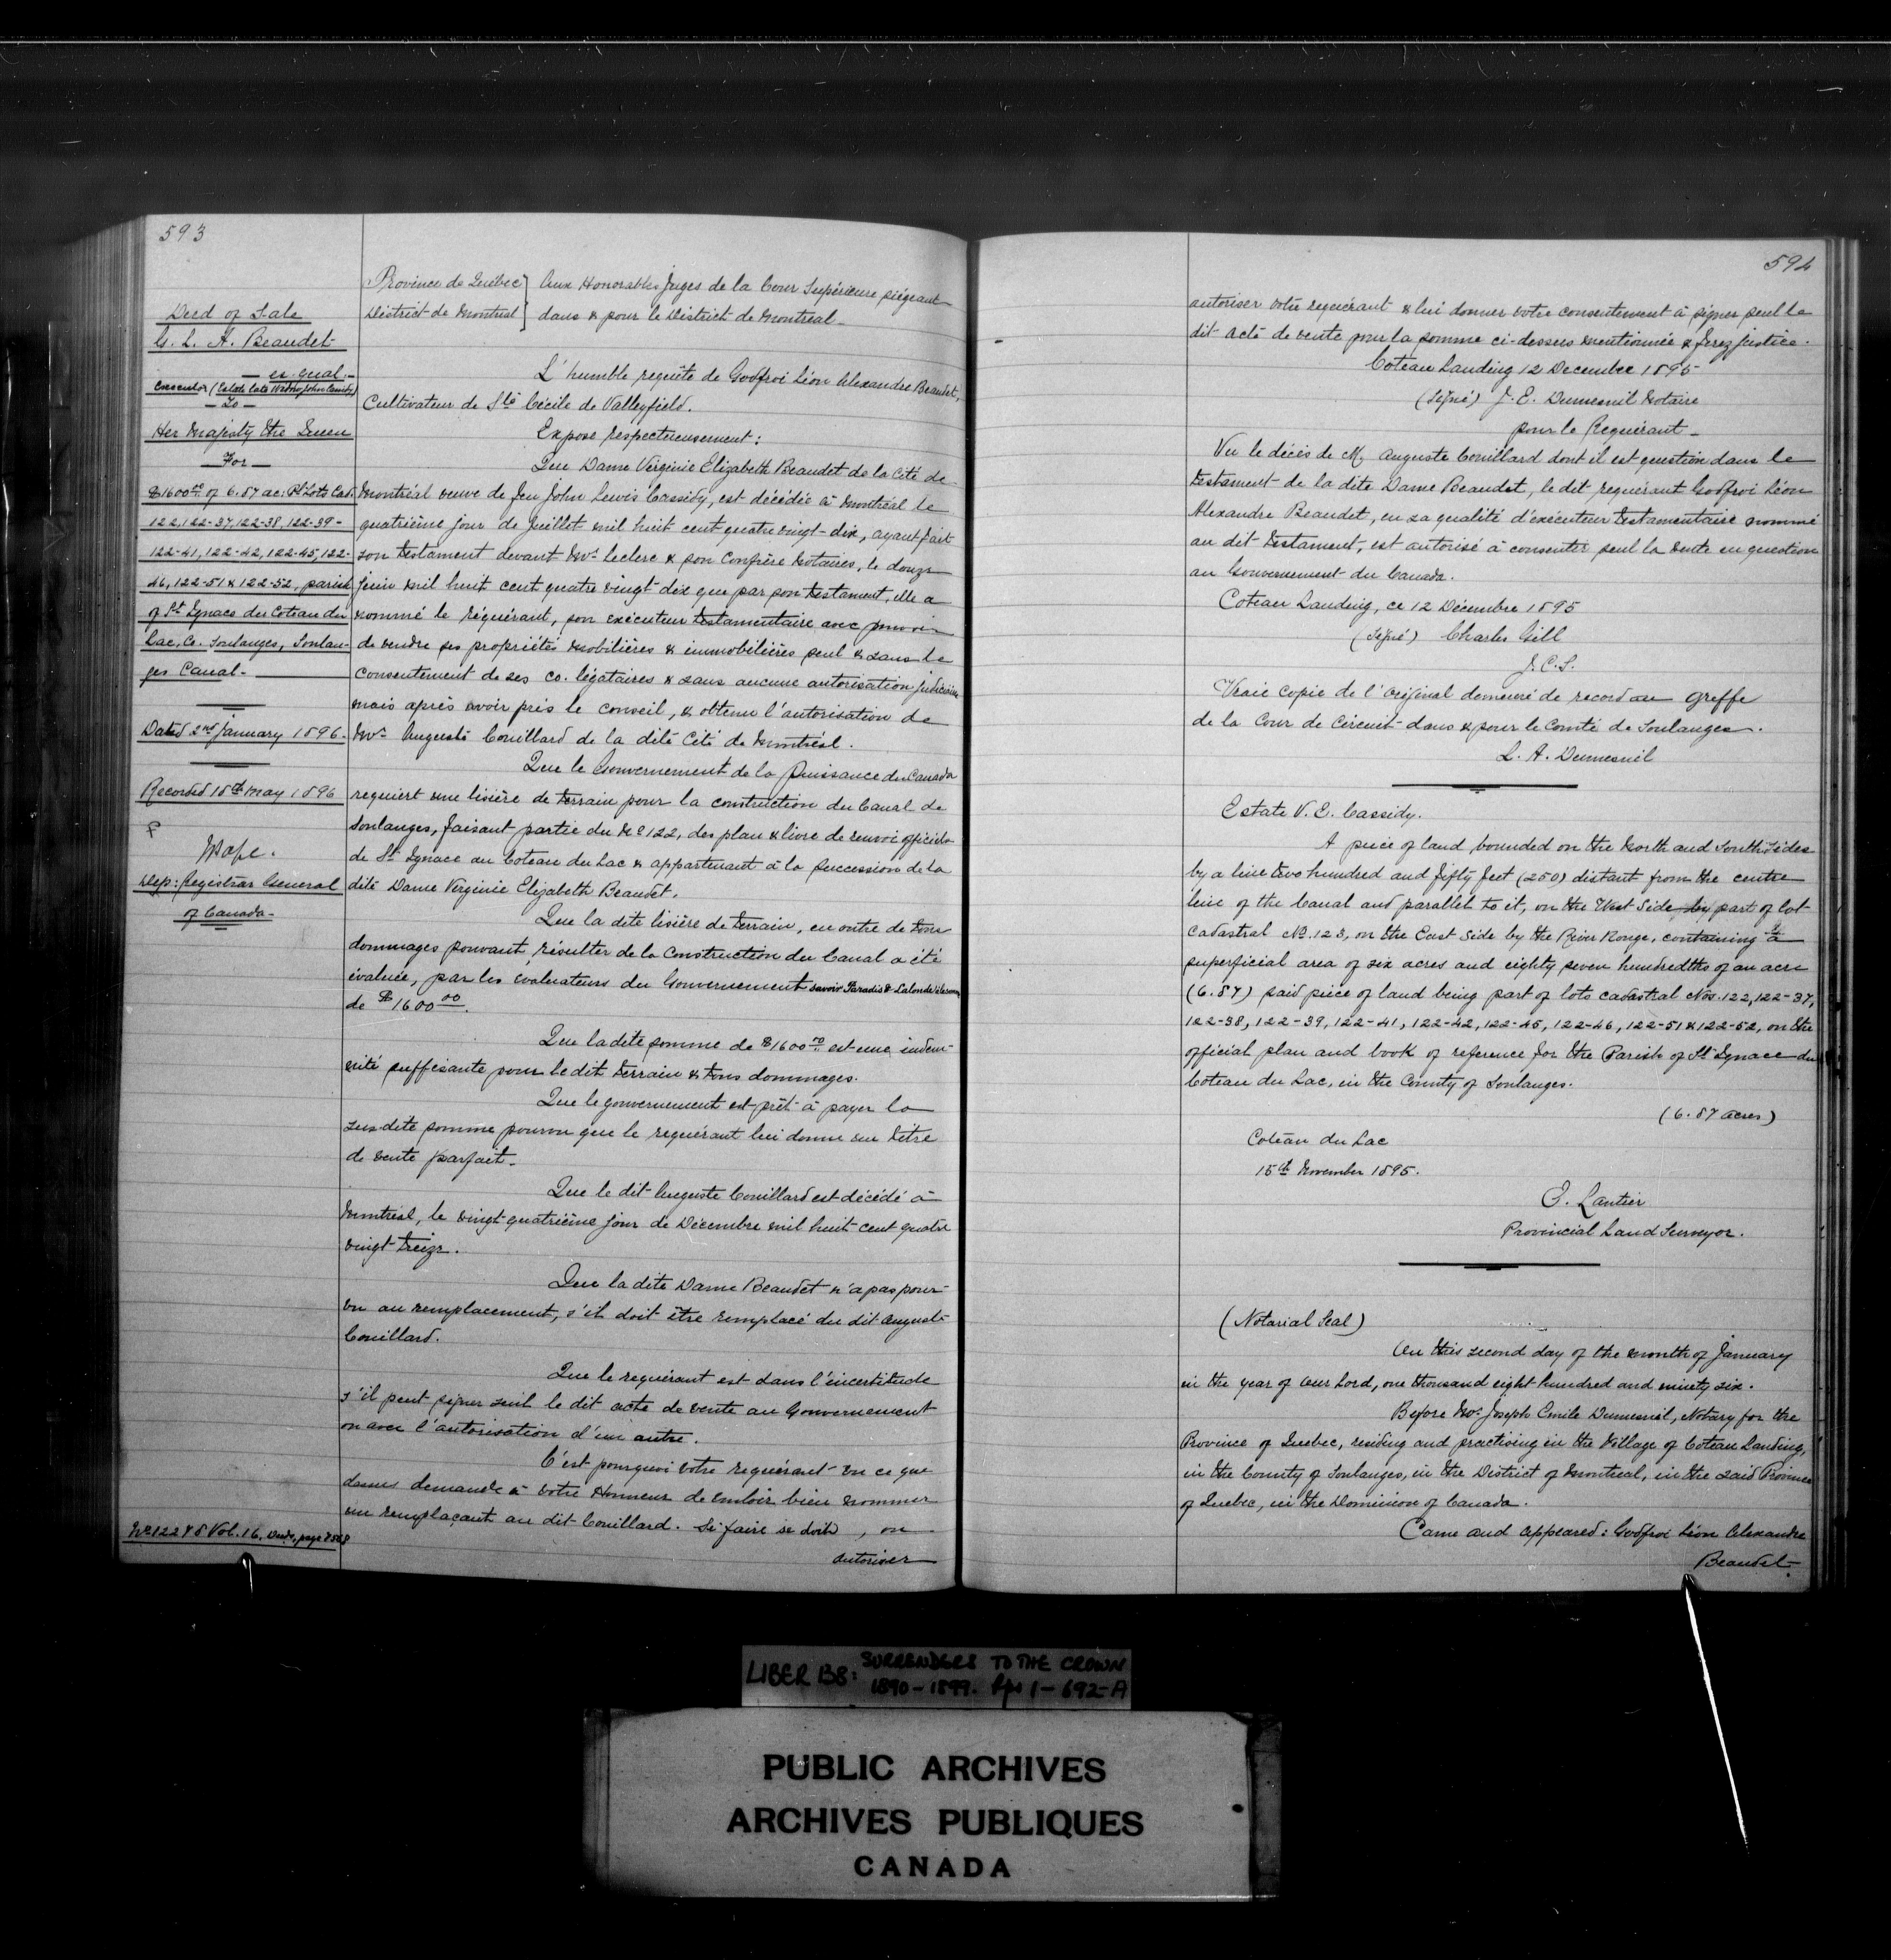 593
Deed of Sale
G. L. A. Beaudet
— es qual. —
Executor (Estate late Widow John Cassidy)
— To —
Her Majesty the Queen
— For —
$1600.00 of 6.87 ac: Pt Lots Cad.
122, 122-37, 122-38, 122-39-
122-41, 122-42, 122-45, 122-
46, 122-51 & 122-52, parish
of St Ignace du Coteau du
Lac, Co. Soulanges, Soulan-
ges Canal.
Dated 2nd January 1896.
Recorded 18th May 1896
Dep: Registrar General
of Canada
No 12278 Vol. 16, Deeds, page
Province de Québec } Aux Honorables Juges de la Cour Supérieure siégeant
District de Montréal } dans & pour le District de Montréal
L'humble requête de Godfroi Léon Alexandre Beaudet,
Cultivateur de Ste Cécile de Valleyfield.
Expose respectueusement:
Que Dame Virginie Elizabeth Beaudet de la Cité de
Montréal veuve de feu John Lewis Cassidy, est décédée à Montréal le
quatrième jour de Juillet mil huit cent quatre vingt-dix, ayant fait
son testament devant Mre Leclerc & son Confrère Notaires, le douze
juin mil huit cent quatre vingt dix que par son testament, elle a
nommé le réquérant, son exécuteur testamentaire avec pouvoir
de vendre ses propriétés mobilières & immobilières seul & sans le
consentement de ses co. légataires & sans aucune autorisation judiciaire
mais après avoir pris le conseil, & obtenu l'autorisation de
Mre Auguste Couillard de la dite Cité de Montréal.
Que le Gouvernement de la Puissance du Canada
requiert une lisière de terrain pour la construction du Canal de
Soulanges, faisant partie du No 122, des plan & livre de renvoi officiels
de St Ignace du Coteau du Lac & appartenant à la succession de la
dite Dame Virginie Elizabeth Beaudet.
Que la dite lisière de terrain, en outre de tous
dommages pouvant, résulter de la Construction du Canal a été
évaluée, par les evaluateurs du Gouvernement savoir Paradis & Lalonde à la somme
de $1600.00.
Que la dite somme de $1600.00 est une indem-
nité suffisante pour le dit terrain & tous dommages.
Que le gouvernement est prêt à payer la
sus-dite somme pourvu que le requérant lui donne un titre
de vente parfait.
Que le dit Auguste Couillard est décédé à
Montréal, le vingt-quatrième jour de Décembre mil huit cent quatre
vingt-treize.
Que la dite Dame Beaudet n'a pas pour-
vu au remplacement, s'il doit être remplacé du dit Auguste
Couillard.
Que le requérant est dans l'incertitude
s'il peut signer seul le dit acte de vente au Gouvernement
ou avec l'autorisation d'un autre.
C'est pourquoi votre requérant vu ce que
dessus demande à votre Honneur de vouloir bien nommer
un remplaçant au dit Couillard. Si faire se doit, ou
autoriser
594
autoriser votre requérant & lui donner votre consentement à signer seul le
dit acte de vente pour la somme ci-dessus mentionnée & ferez justice.
Coteau Landing 12 Decembre 1895
(Signé) J. E. Dumesnil Notaire
pour le Requérant
Vu le décès de M. Auguste Couillard dont il est question dans le
testament de la dite Dame Beaudet, le dit requérant Godfroi Léon
Alexandre Beaudet, en sa qualité d'exécuteur testamentaire nommé
au dit testament, est autorisé à consentir seul la vente en question
au Gouvernement du Canada.
Coteau Landing, ce 12 Décembre 1895
(Signé) Charles Gill
J. C. S.
Vraie copie de l'original demeuré de record au greffe
de la Cour de Circuit dans & pour le Comté de Soulanges.
L. A. Dumesnil
Estate V. E. Cassidy.
A piece of land bounded on the North and South Sides
by a line two hundred and fifty feet (250) distant from the centre
line of the Canal and parallel to it, on the West Side by part of lot
Cadastral No. 123, on the East Side by the River Rouge, containing a
superficial area of six acres and eighty seven hundredths of an acre
(6.87) said piece of land being part of lots cadastral Nos. 122, 122-37,
122-38, 122-39, 122-41, 122-42, 122-45, 122-46, 122-51 & 122-52, on the
official plan and book of reference for the Parish of St Ignace du
Coteau du Lac, in the County of Soulanges.
(6.87 acres)
Coteau du Lac
15th November 1895.
O. Lantier
Provincial Land Surveyor.
(Notarial Seal)
On this second day of the month of January
in the year of Our Lord, one thousand eight hundred and ninety six.
Before Mre Joseph Emile Dumesnil, Notary for the
Province of Quebec, residing and practising in the Village of Coteau Landing,
in the County of Soulanges, in the District of Montreal, in the said Province
of Quebec, in the Dominion of Canada.
Came and appeared: Godfroi Léon Alexandre
Beaudet
LIBER 138: SURRENDERS TO THE CROWN
1890-1899. Pps 1-692-A
PUBLIC ARCHIVES
ARCHIVES PUBLIQUES
CANADA